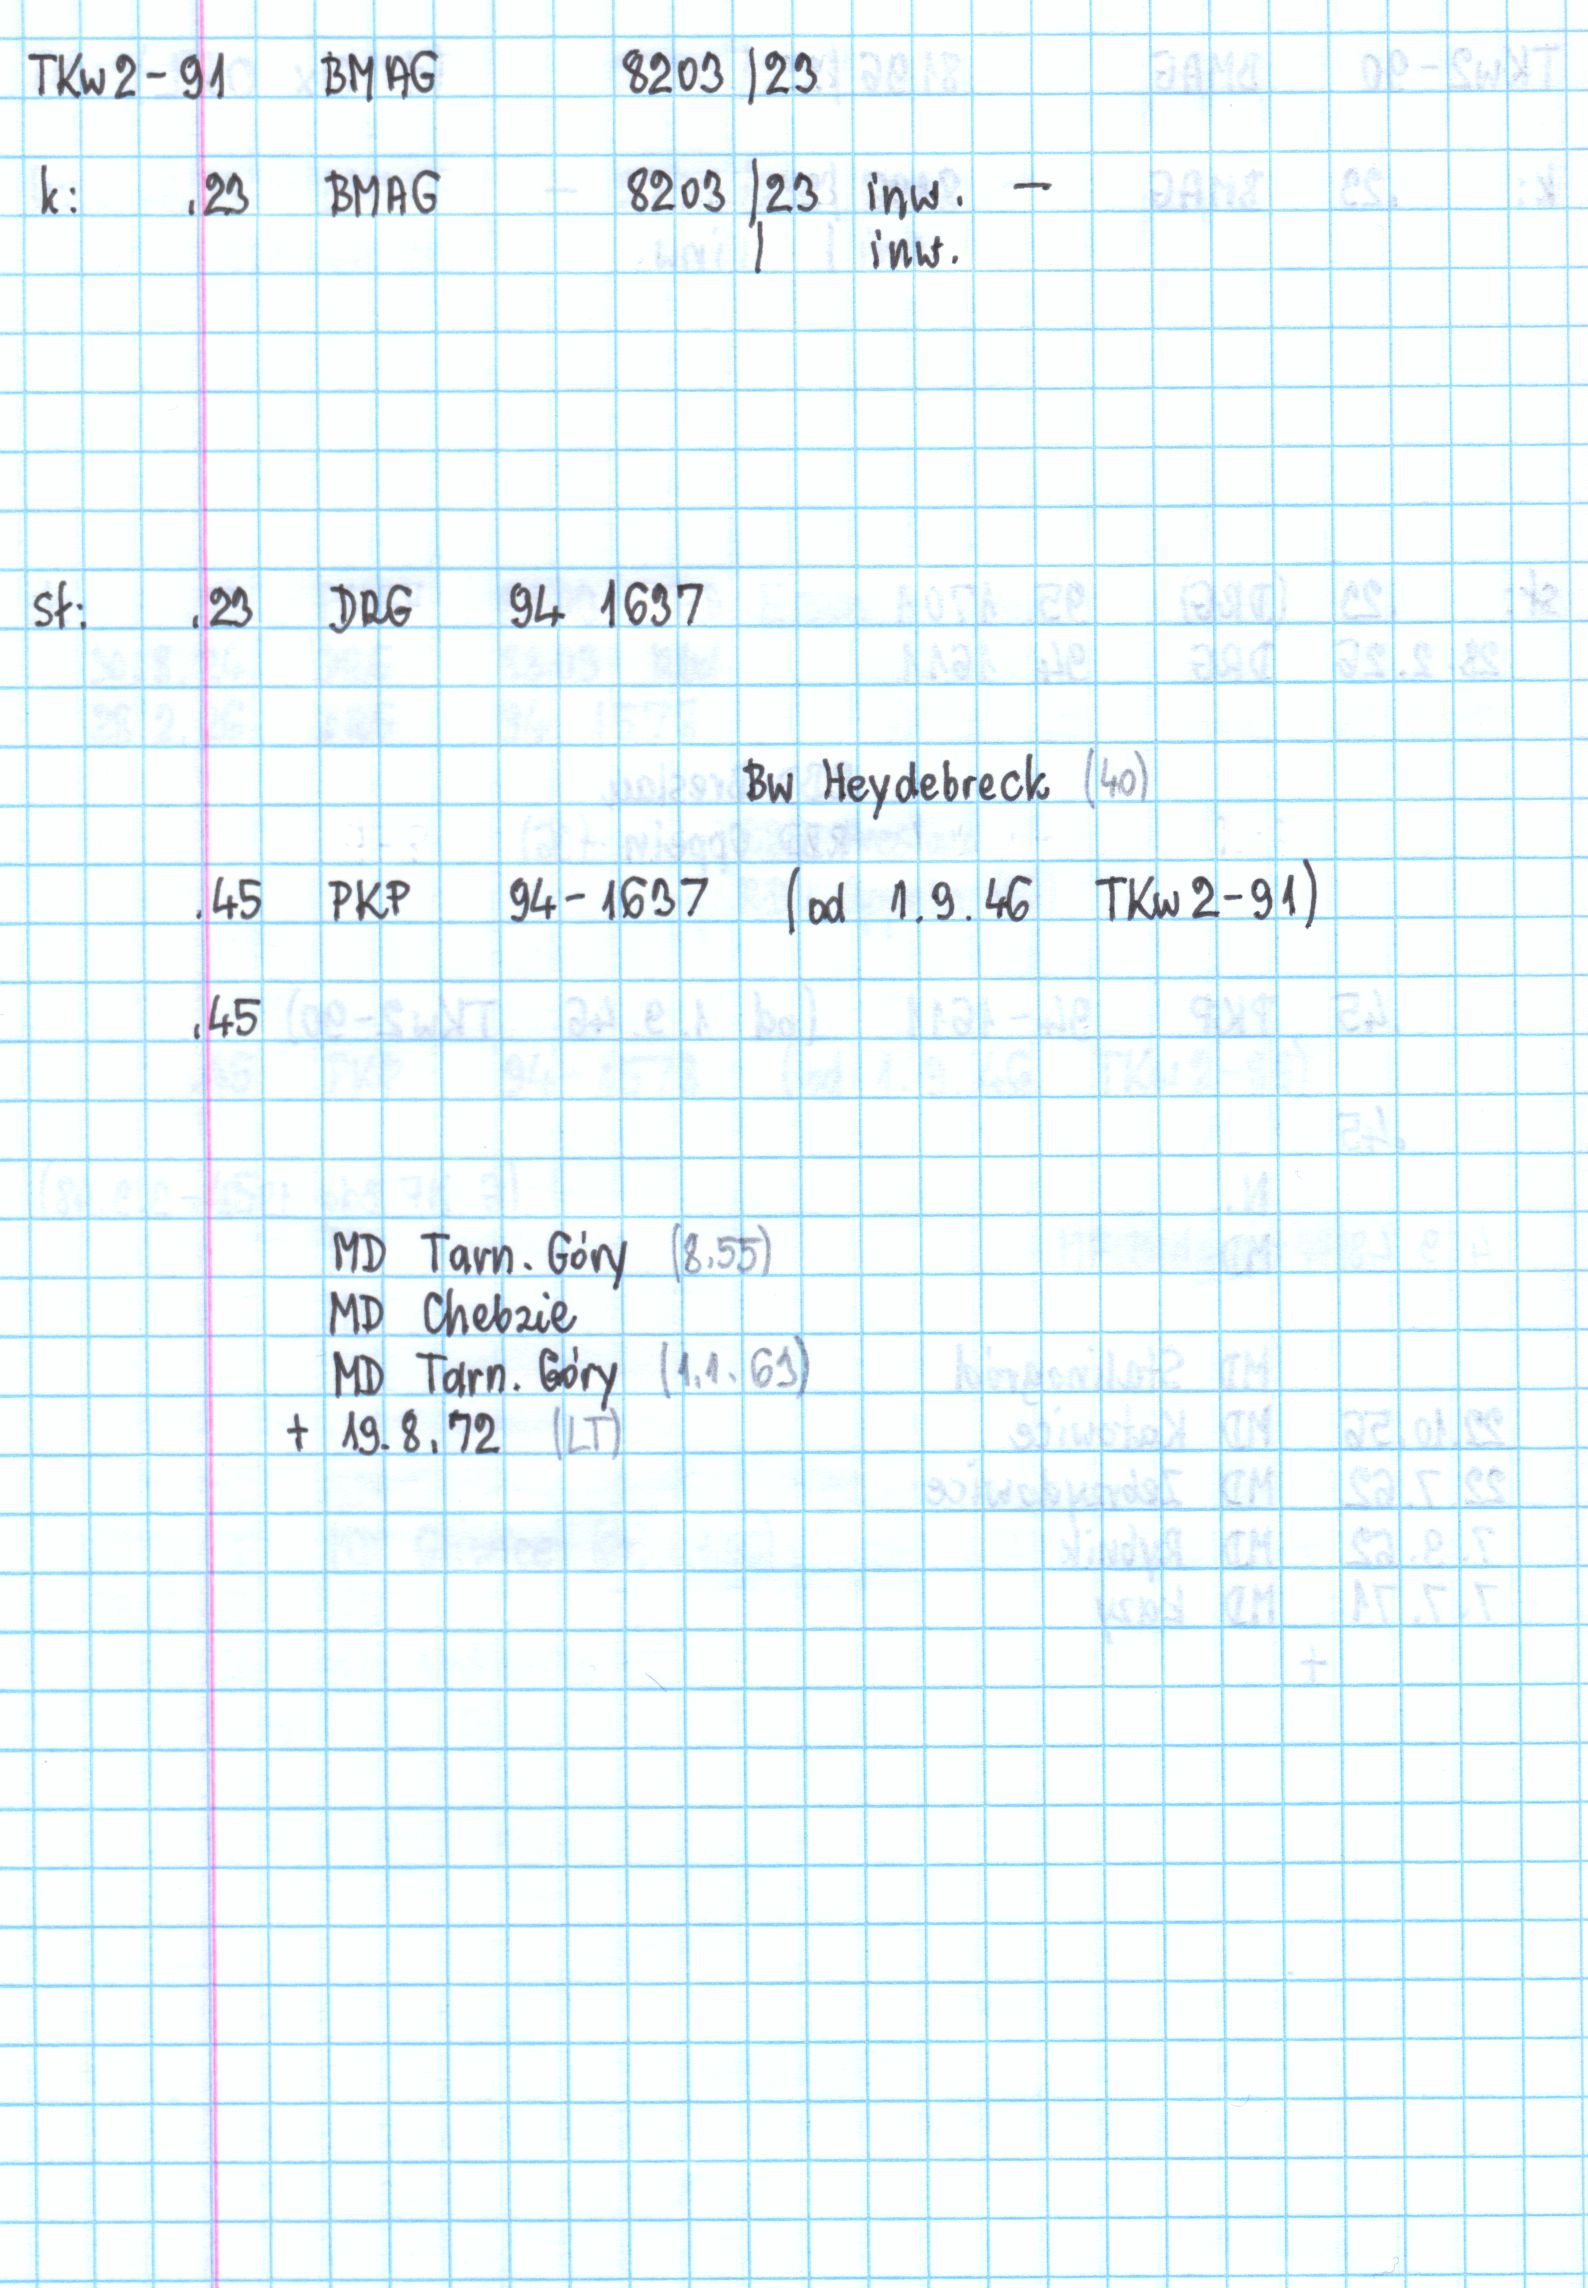 TKw2-91 BMAG 8203/23
k: .23 BMAG 8203/23 inw. -
/ inw.
st: .23 DRG 94 1637
Bw Heydebreck (40)
.45 PKP 94-1637 (od 1.9.46 TKw2-91)
.45
MD Tarn. Góry (8.55)
MD Chebzie
MD Tarn. Góry (1.1.63)
+ 19.8.72 (LT)